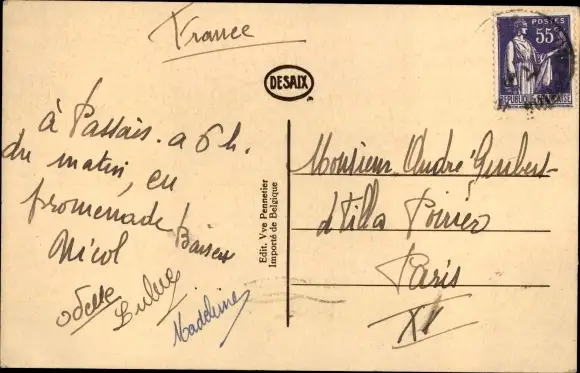 France
DESAIX
POSTES
55
à Passais. a 6 h.
du matin, en
promenade!
Nicol Baiser
Odette
Lulu
Madeleine
Edit. Vve Pennetier
Importé de Belgique
Monsieur André Guibert
Villa Poirier
Paris
XV